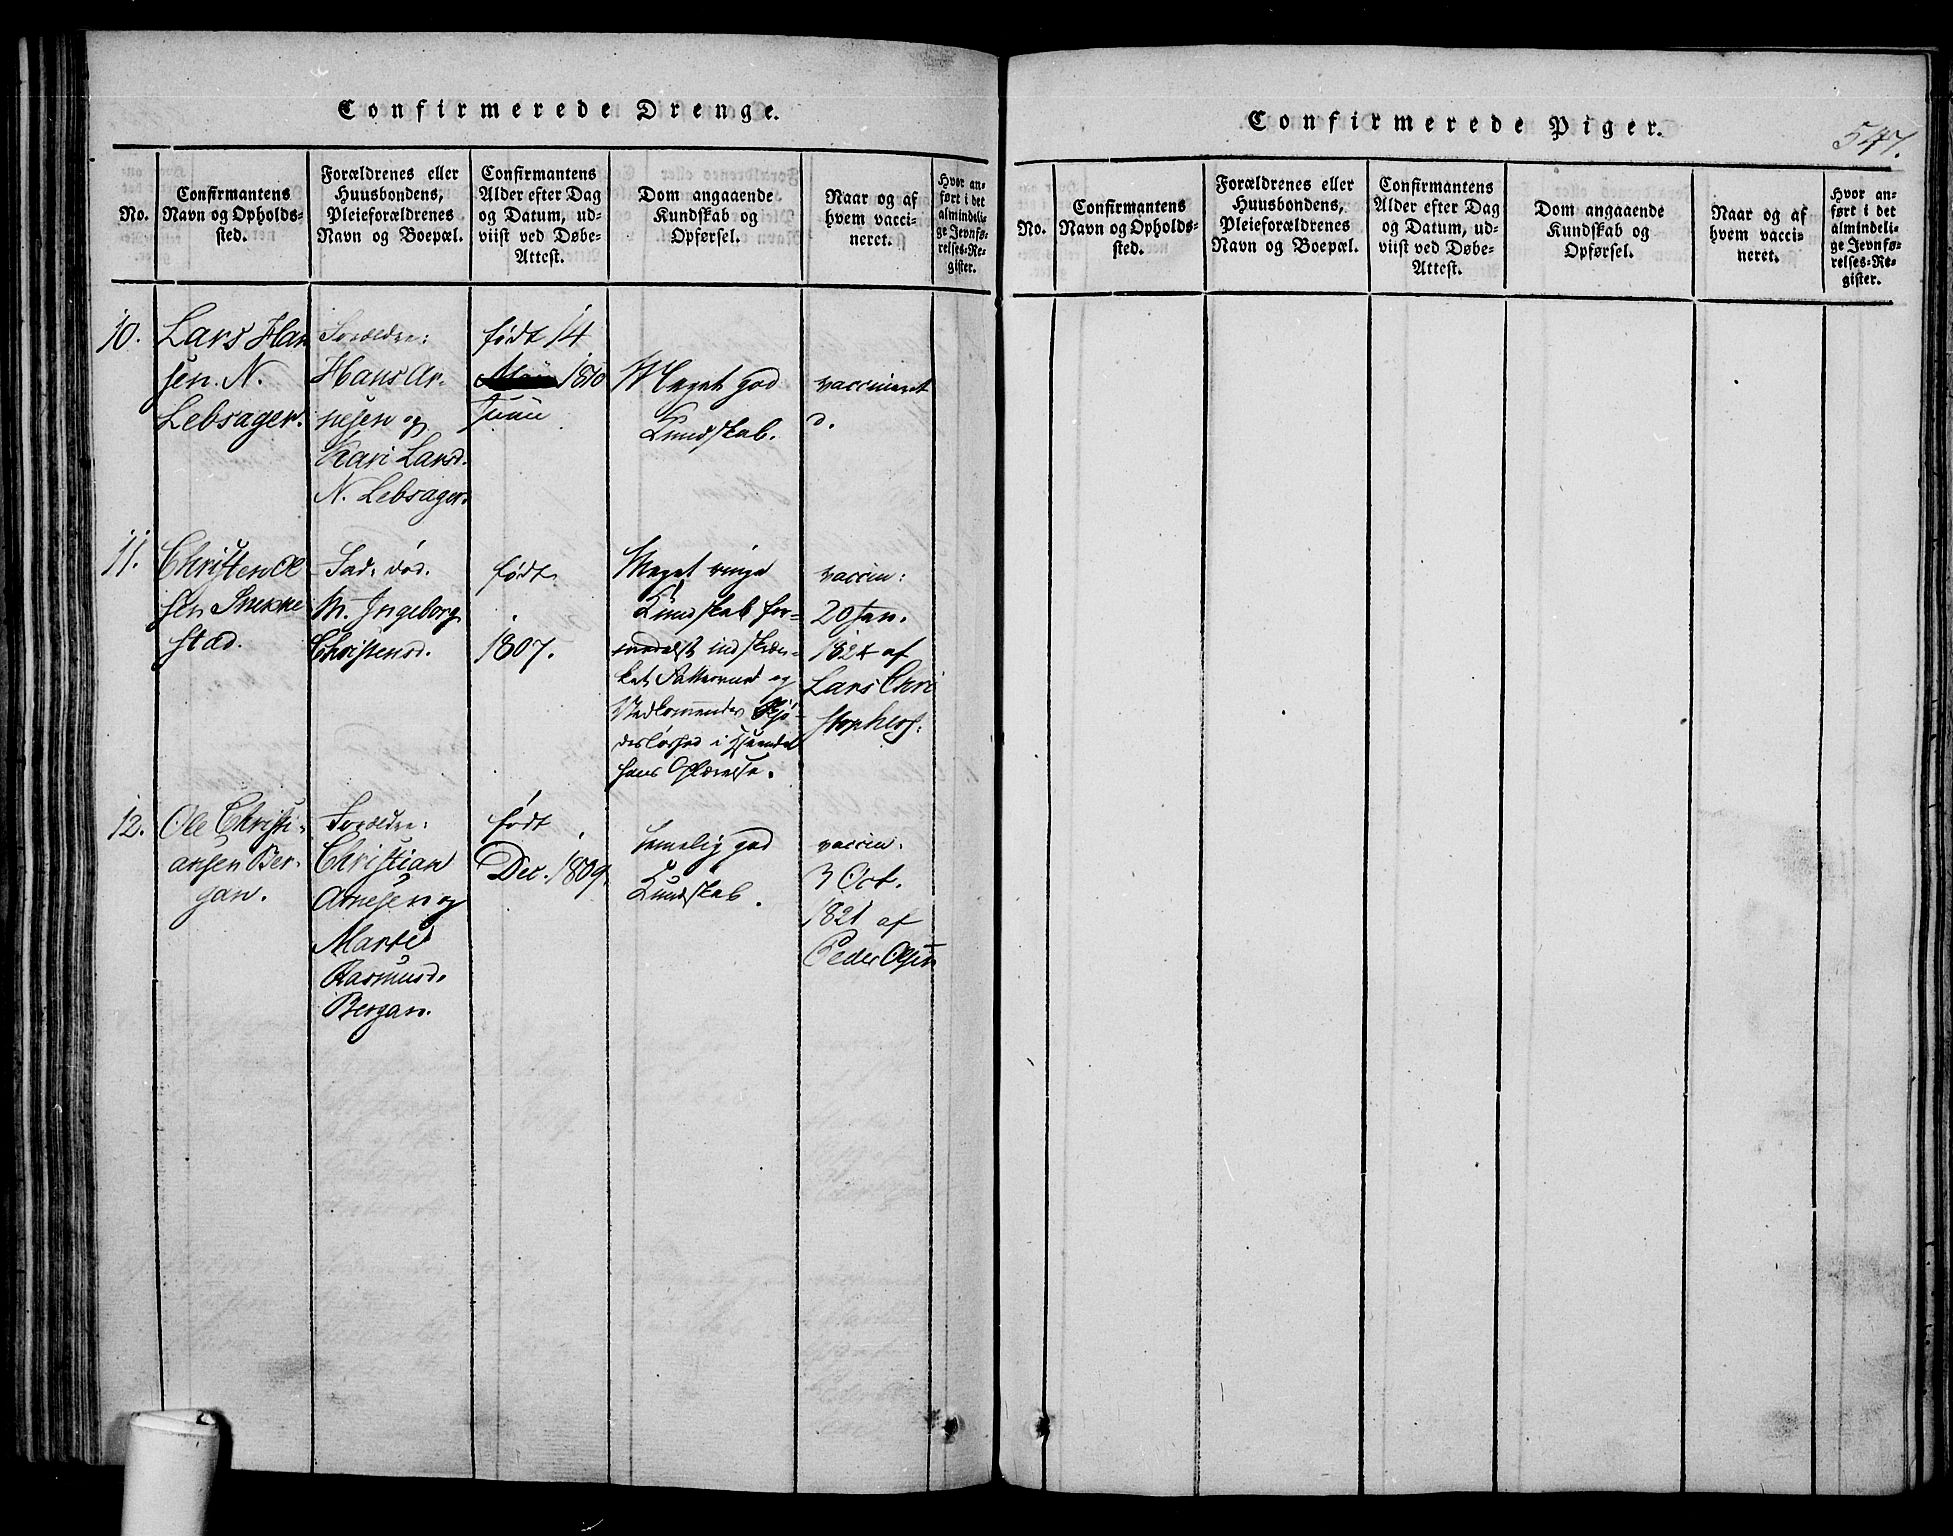 Confirmerede Drenge.
No.
Confirmantens
Navn og Opholds-
sted.
Forældrenes eller
Huusbondens,
Pleieforældrenes
Navn og Boepæl.
Confirmantens
Alder efter Dag
og Datum, ud-
viist ved Døbe-
Attest.
Dom angaaende
Kundskab og
Opførsel.
Naar og af
hvem vacci-
neret.
Hvor an-
ført i det
almindeli-
ge Jevnfø-
relses-Re-
gister.
10.
Lars Han
sen. N.
Lebsager.
Forældre:
Hans Ar-
nesen og
Kari Larsd.
N. Lebsager.
født 14
1810
Juni
Meget god
Kundskab.
vaccineret
d.
11.
Christen Ol
sen Snekke
stad.
Fad. død.
M. Ingeborg
Christensd.
født
1807.
Meget ringe
Kundskab for-
medelst indskræn-
ket Fatteevne og
Vedkommendes
i
hans Oplærelse.
vaccin:
20 Jan.
1824 af
Lars Chri
stophers:
12.
Ole Christi-
ansen Ber-
gan.
Forældre:
Christian
Arnesen og
Marte
Rasmusd.
Bergan.
født
Dec. 1809.
temelig god
Kundskab.
vaccin.
3 Oct.
1821 af
Peder Olsen
Confirmerede Piger.
547.
No.
Confirmantens
Navn og Opholds-
sted.
Forældrenes eller
Huusbondens,
Pleieforældrenes
Navn og Boepæl.
Confirmantens
Alder efter Dag
og Datum, ud-
viist ved Døbe-
Attest.
Dom angaaende
Kundskab og
Opførsel.
Naar og af
hvem vacci-
neret.
Hvor an-
ført i det
almindeli-
ge Jevnfø-
relses-Re-
gister.